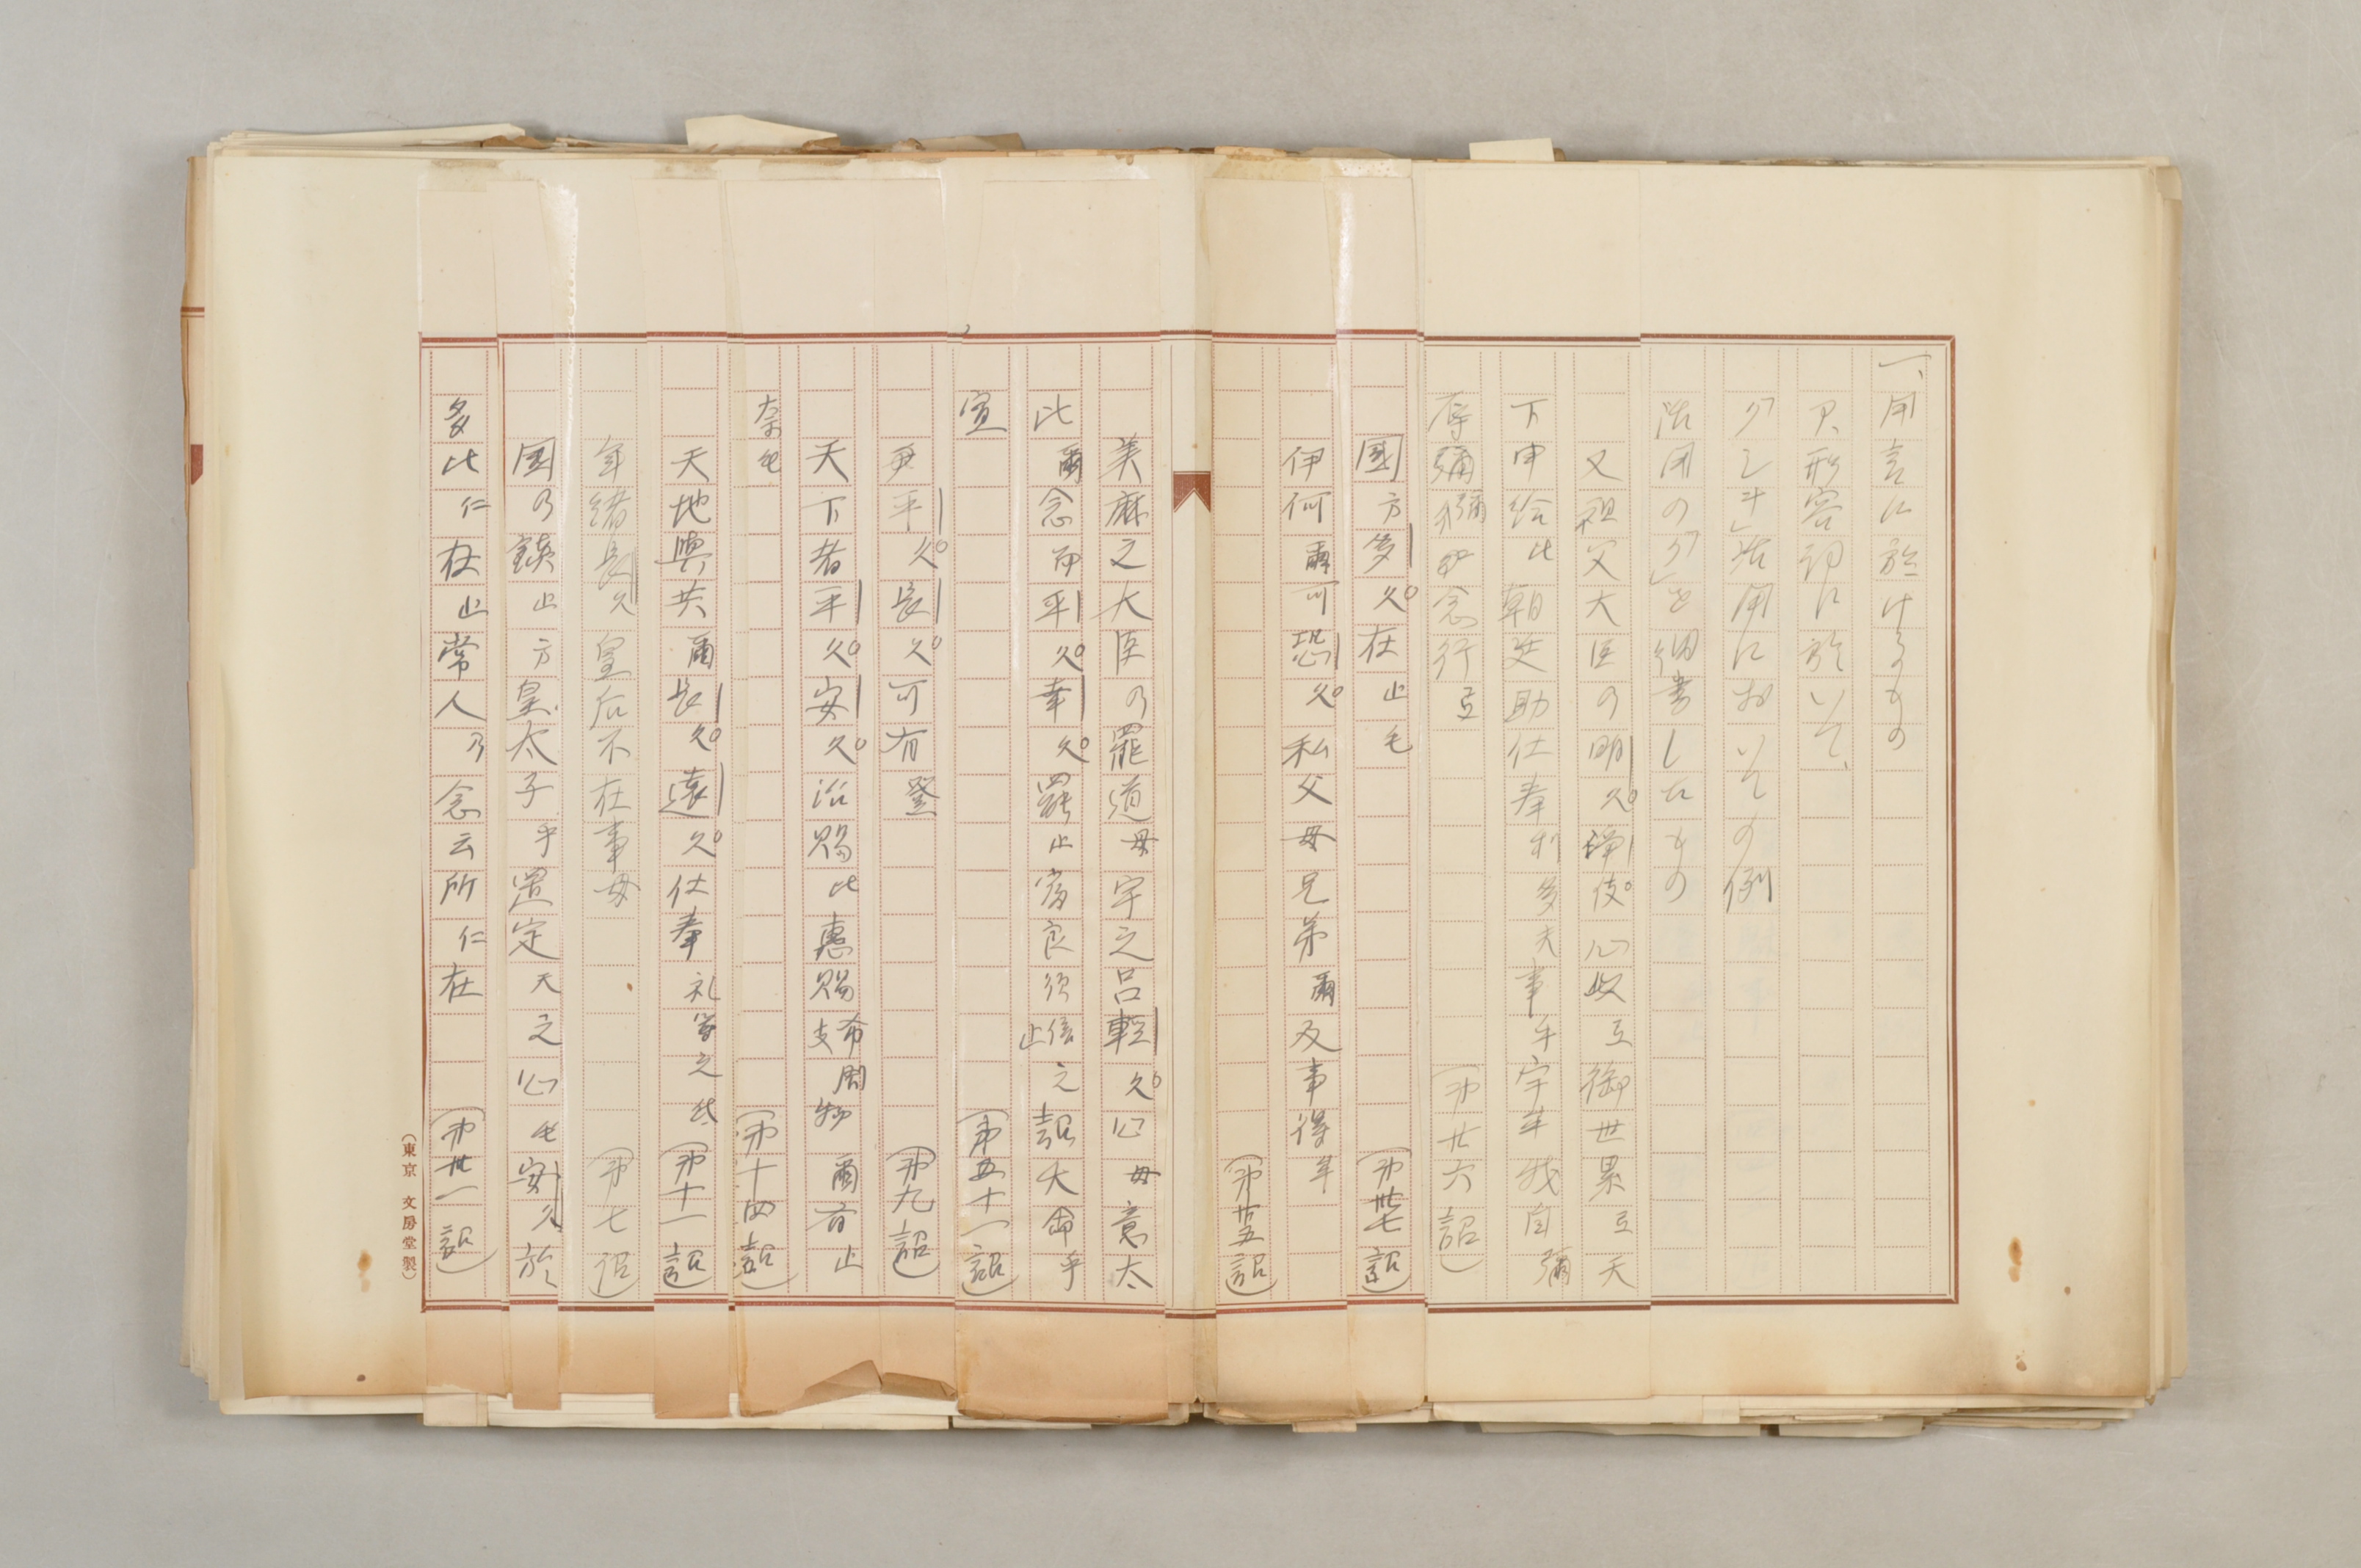 一、用言に於けるもの
ア、形容詞に於いて、
「ク」「シキ」活用においての例
活用の「ク」を細書したもの
又祖父大臣の明久浄伎心以弖御世累弖天
下申給比朝廷助仕奉利多夫事乎宇牟我自彌
辱彌念行弖
(第廿六詔)
國方多久在止毛
(第卅七詔)
伊何爾可恐久私父母兄弟爾及事得牟
(第廿五詔)
美麻之大臣乃罷道母宇之呂軽久心母意太
比爾念而平久幸久罷止富良須倍之止詔大命乎
宣
(第五十一詔)
平久長久可有登
(第九詔)
天下者平久安久治賜比惠賜布支間物爾有止
奈毛
(第十四詔)
天地與共爾長久遠久仕奉礼等之
(第十一詔)
年緒長久皇后不在事母
(第七詔)
国乃鎮止方皇太子乎置定天之心毛安久於
多比仁在止常人乃念云所仁在
(第卅一詔)
(東京 文房堂製)